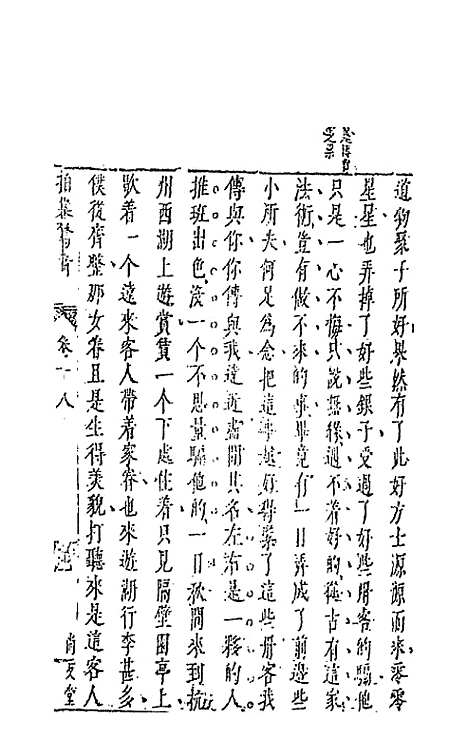 道物聚于所好果然有了此好方士源源而來零零
星星也弄掉了好些銀子受過了好些丹客的騙他
只是一心不悔只說無緣遇不着好的從古有這家
法術豈有做不來的事畢竟有一日弄成了前邊些
小所失何足為念把這事越好尋繁了這些丹客我
傳與你你傳與我遠近盡聞其名左右是一夥的人
推班出色沒一個不思量騙他的一日秋間來到杭
州西湖上遊賞賃一個下處住着只見隔壁園亭上
歇着一个遠來客人帶着家眷也來遊湖行李甚多
僕從齊整那女眷且是生得美貌打聽來是這客人
拍案驚奇 卷十八 尚友堂